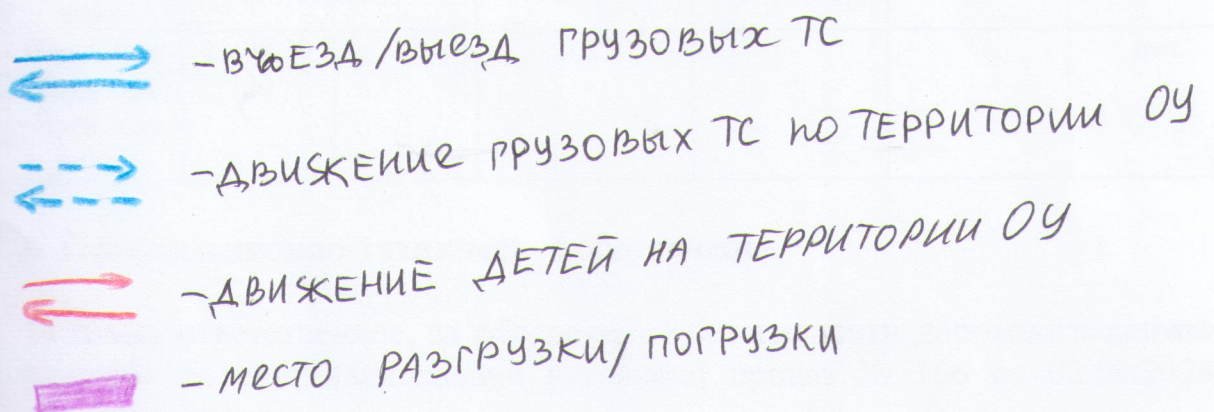 - ВЪЕЗД/ВЫЕЗД ГРУЗОВЫХ ТС
- ДВИЖЕНИЕ ГРУЗОВЫХ ТС ПО ТЕРРИТОРИИ ОУ
- ДВИЖЕНИЕ ДЕТЕЙ НА ТЕРРИТОРИИ ОУ
- МЕСТО РАЗГРУЗКИ/ПОГРУЗКИ